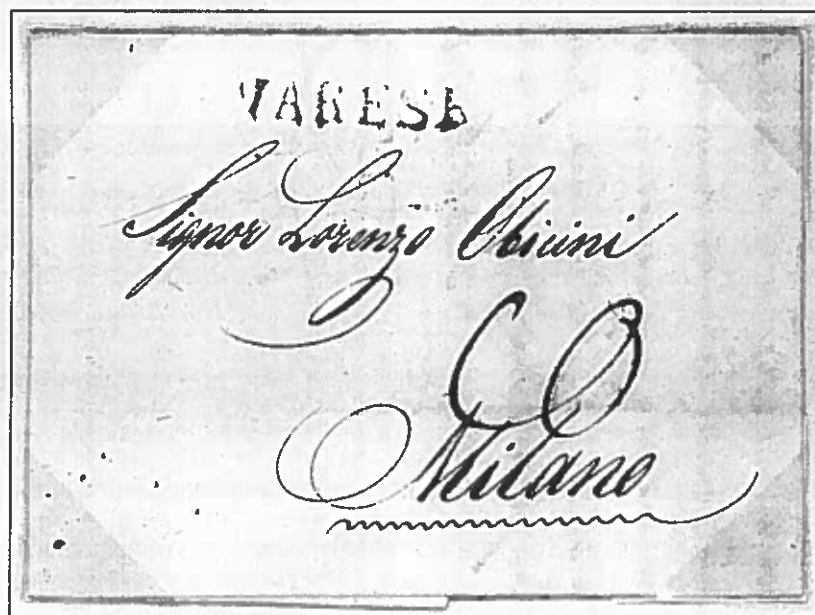 VARESE
Signor Lorenzo Obicini
Milano